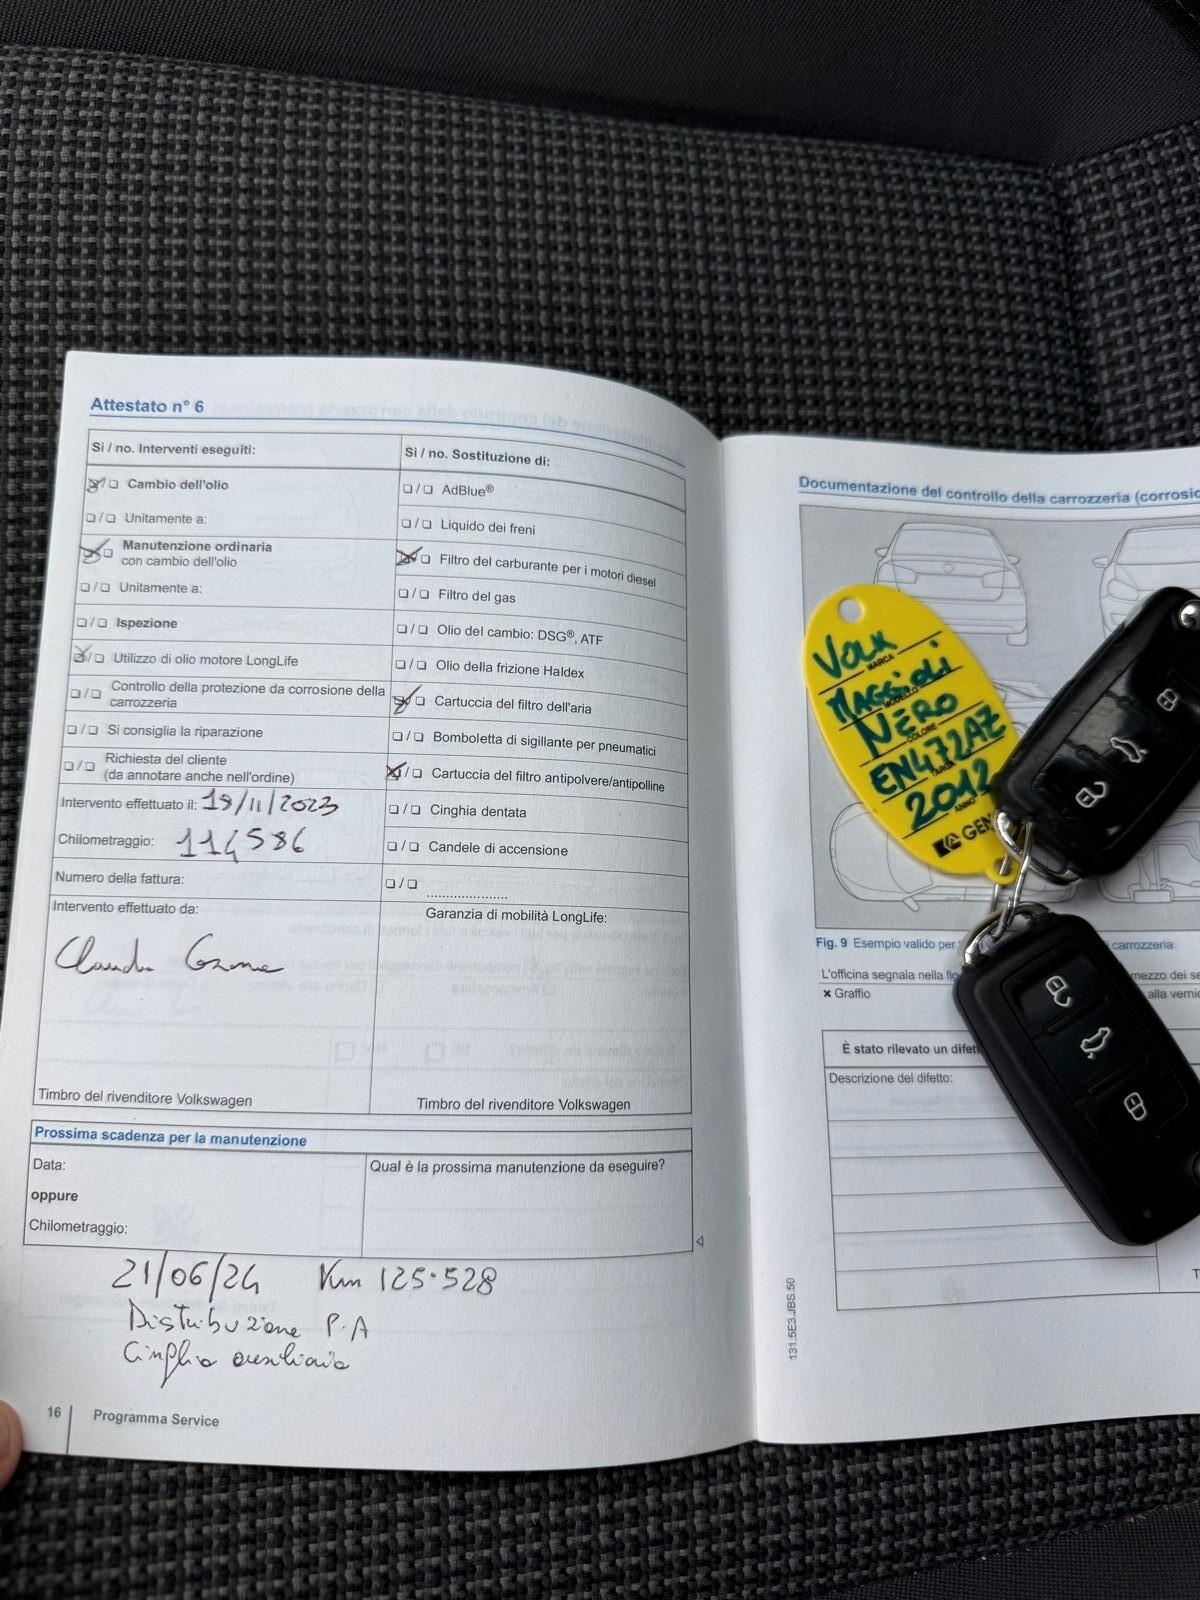 Attestato n° 6
Si / no. Interventi eseguiti:
❏/❏ Cambio dell'olio
❏/❏ Unitamente a:
❏/❏ Manutenzione ordinaria
con cambio dell'olio
❏/❏ Unitamente a:
❏/❏ Ispezione
❏/❏ Utilizzo di olio motore LongLife
❏/❏ Controllo della protezione da corrosione della
carrozzeria
❏/❏ Si consiglia la riparazione
❏/❏ Richiesta del cliente
(da annotare anche nell'ordine)
Intervento effettuato il: 19/11/2023
Chilometraggio: 114586
Numero della fattura:
Intervento effettuato da:
Timbro del rivenditore Volkswagen
Si / no. Sostituzione di:
❏/❏ AdBlue®
❏/❏ Liquido dei freni
❏/❏ Filtro del carburante per i motori diesel
❏/❏ Filtro del gas
❏/❏ Olio del cambio: DSG®, ATF
❏/❏ Olio della frizione Haldex
❏/❏ Cartuccia del filtro dell'aria
❏/❏ Bomboletta di sigillante per pneumatici
❏/❏ Cartuccia del filtro antipolvere/antipolline
❏/❏ Cinghia dentata
❏/❏ Candele di accensione
❏/❏ ......................
Garanzia di mobilità LongLife:
Timbro del rivenditore Volkswagen
Prossima scadenza per la manutenzione
Data:
oppure
Chilometraggio:
Qual è la prossima manutenzione da eseguire?
21/06/24 Km 125.528
Distribuzione P.A
Cinghia ausiliaria
16 Programma Service
Documentazione del controllo della carrozzeria (corrosio
Volk
MARCA
MAGGIOLI
MODELLO
NERO
COLORE
EN472AZ
TARGA
2012
ANNO
GEN
Fig. 9 Esempio valido per carrozzeria
L'officina segnala nella fig mezzo dei se
× Graffio alla verni
È stato rilevato un difet
Descrizione del difetto:
T
131.5E3.JBS.50